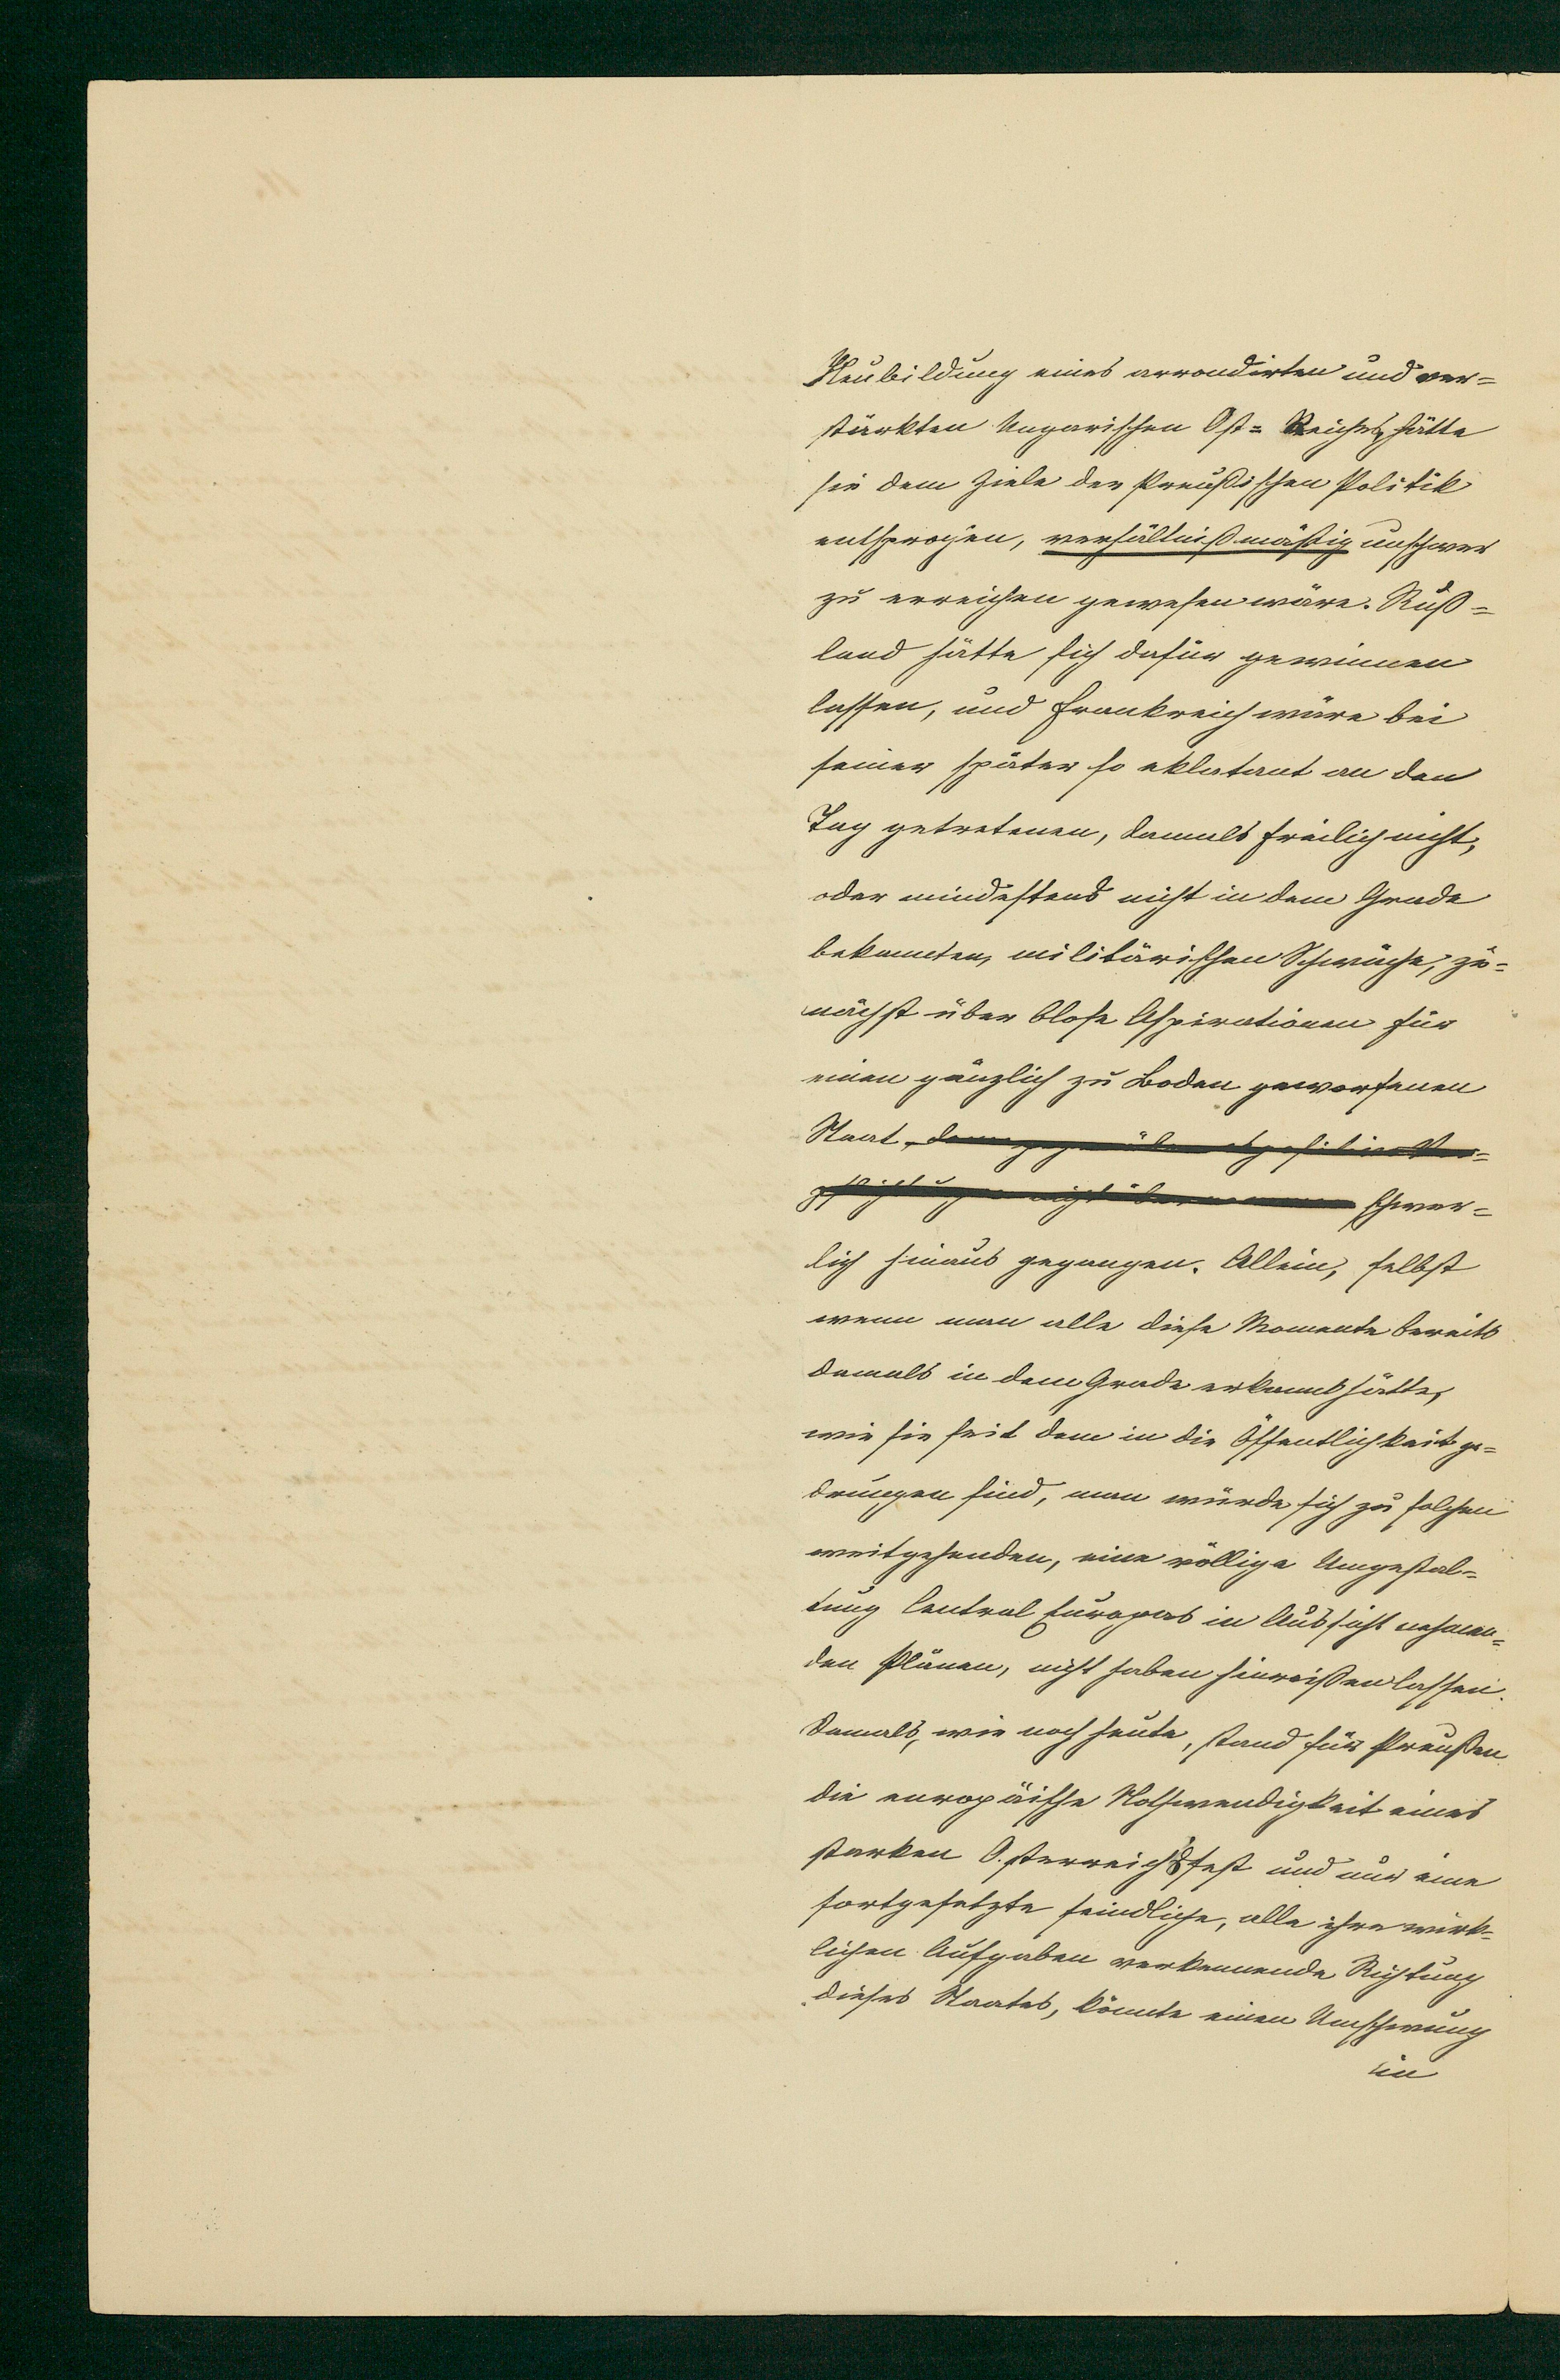 Neubildung eines arrondirten und ver=
stärkten Ungarischen Ost= Reiches, hätte
sie dem Ziele der Preußischen Politik
entsprochen, verhältnißmäßig unschwer
zu erreichen gewesen wäre. Ruß=
land hätte sich dafür gewinnen
lassen, und Frankreich wäre bei
seiner später so eklatant an den
Tag getretenen, damals freilich nicht,
oder mindestens nicht in dem Grade
bekannten, militärischen Schwäche, zu=
nächst über blose Aspirationen für
einen gänzlich zu Boden geworfenen
Staat,
schwer=
lich hinaus gegangen. Allein, selbst
wenn man alle diese Momente bereits
damals in dem Grade erkannt hätte,
wie sie seit dem in die Öffentlichkeit ge=
drungen sind, man würde sich zu solchen
weitgehenden, eine völlige Umgestal=
tung Central Europas in Aussicht nehmen=
den Plänen, nicht haben hinreißen lassen.
Damals, wie noch heute, stand für Preußen
die europäische Nothwendigkeit eines
starken Österreichs fest und nur eine
fortgesetzte feindliche, alle ihre wirk=
lichen Aufgaben verkennende Richtung
dieses Staates, könnte einen Umschwung
in